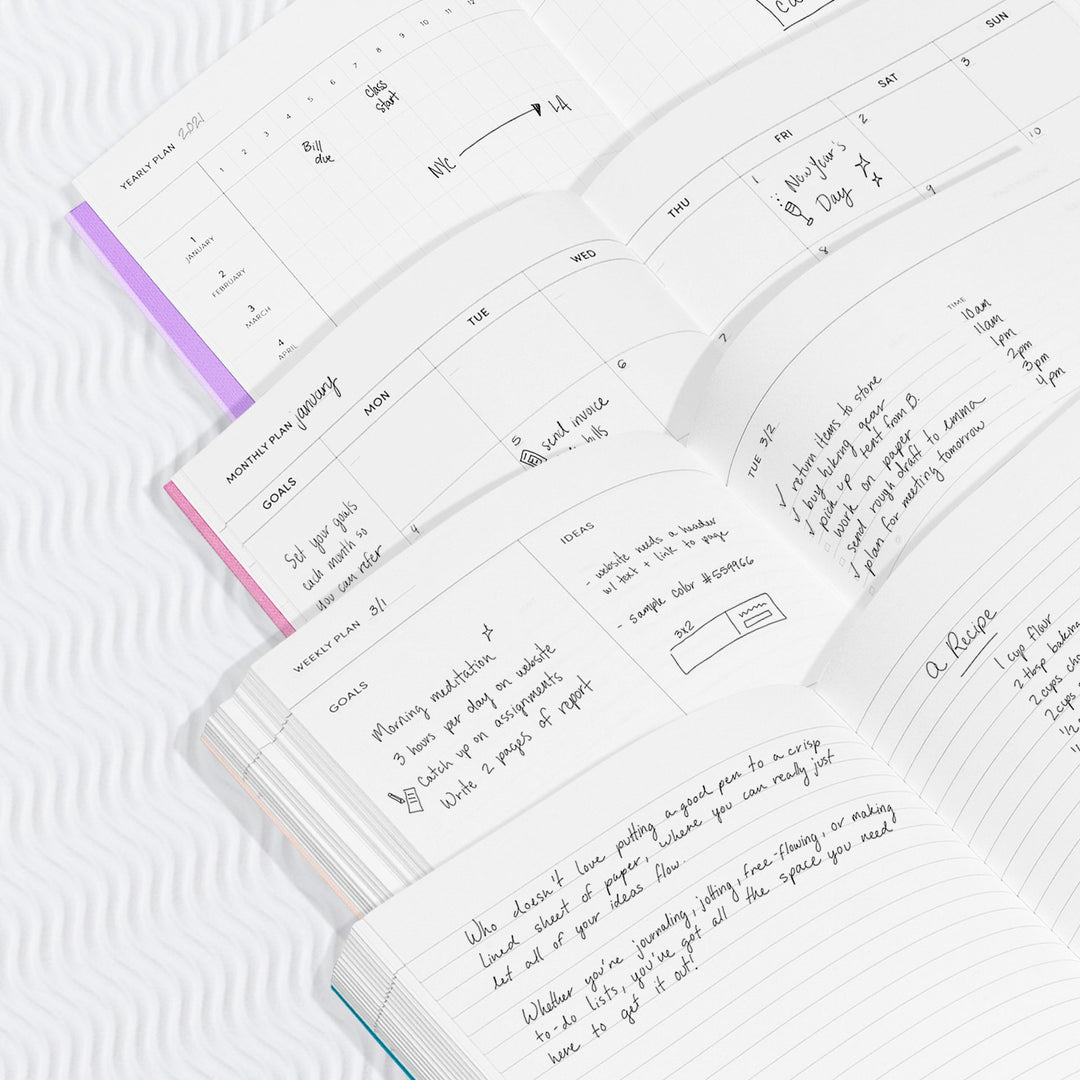 YEARLY PLAN 2021
1 2 3 4 5 6 7 8 9 10 11 12
Bill
due
Class
start
NYC
LA
1
JANUARY
2
FEBRUARY
3
MARCH
4
APRIL
MONTHLY PLAN january
GOALS
MON
TUE
WED
THU
FRI
SAT
SUN
Set your goals
each month so
you can refer
4
5
send invoice
bills
6
7
8
1
New Year's
Day
2
3
9
10
WEEKLY PLAN 3/1
GOALS
Morning meditation
3 hours per day on website
Catch up on assignments
Write 2 pages of report
IDEAS
- website needs a header
w/ text + link to page
- sample color #559966
3x2
TUE 3/2
TIME
✓ return items to store 10am
✓ buy hiking gear 11am
✓ pick up tent from B. 1pm
work on paper 2pm
send rough draft to emma 3pm
✓ plan for meeting tomorrow 4pm
Who doesn't love putting a good pen to a crisp
lined sheet of paper, where you can really just
let all of your ideas flow.
Whether you're journaling, jotting, free-flowing, or making
to-do lists, you've got all the space you need
here to get it out!
a Recipe
1 cup flour
2 tbsp baking
2 cups
2 cups